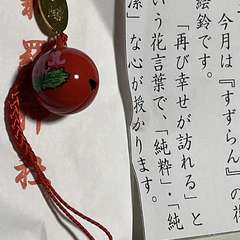 今月は『すずらん』の
絵鈴です。
「再び幸せが訪れる」と
いう花言葉で、「純粋」・「純
潔」な心が授かります。